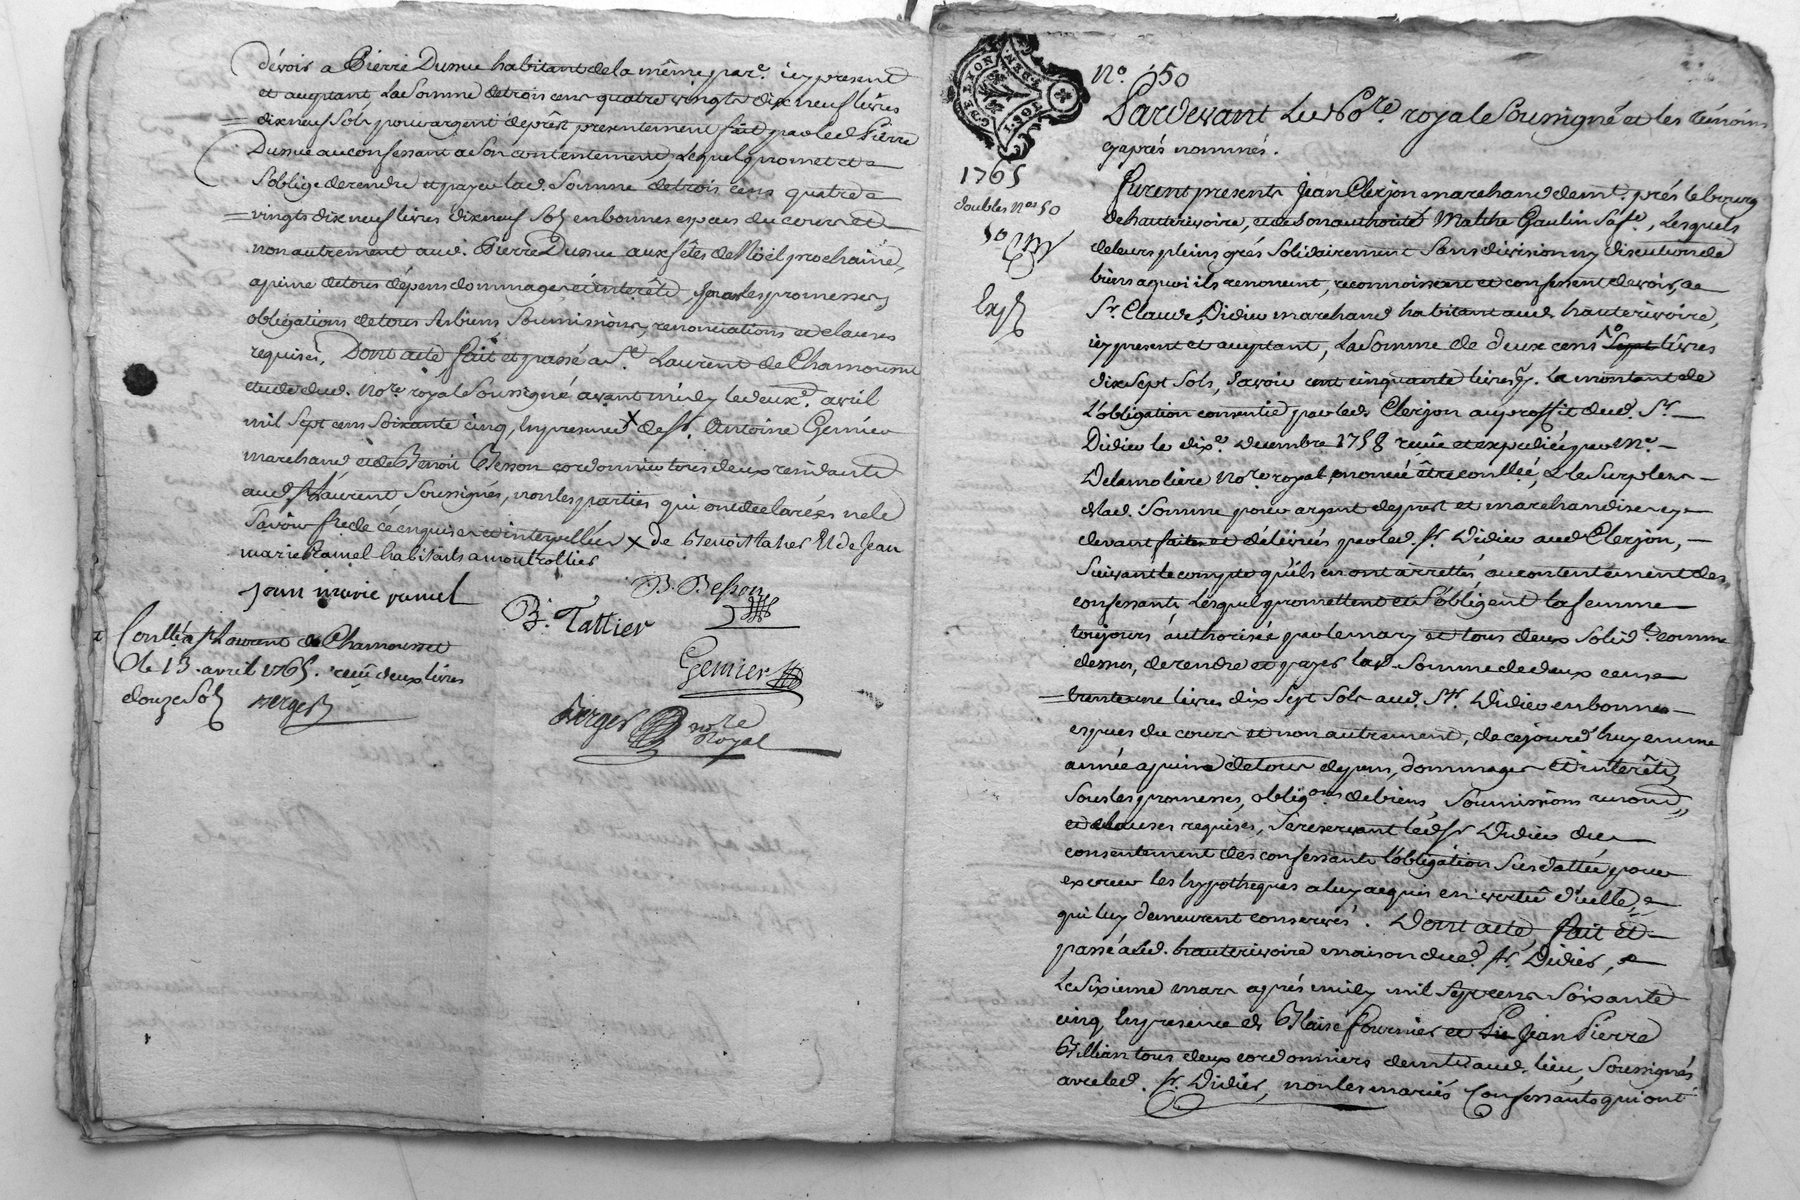 devoir a Pierre Dumu habitant de la même par.e icy present
et acceptant La Somme de trois cens quatre vingts dix neuf livres
dix neuf Sols pour argent de prêt presentement fait par led Pierre
au confessant a Son contentement Lequel promet et
S'oblige de rendre et payer lad. Somme de trois cens quatre
vingts dix neuf livres dix neuf Sols en bonnes especes du cours et
non autrement aud. Pierre aux fêtes de Nöel prochaine,
a peine de tous dépens dommages et interêts, Sous les promesses,
obligations de tous Ses biens Soumissions, renonciations et clauses
requises, Dont acte fait et passé a St. Laurent de Chamousset
etude dud. No.re royal Soussigné avant midy le deux.e avril
mil Sept cens Soixante cinq, En presence X de Sr. Antoine Gemier
marchand, et de Benoit Besson cordonnier tous deux residants
aud. St Laurent Soussignés, non les parties qui ont declarées ne le
Savoir faire de ce enquises et interpellées X de Benoit Et de Jean
marie Ramel habitants a montrottier
jean marie ramel
B. Besson
B. Tattier
Gemier
Berger no.re royal
Conllé a St Laurent de Chamousset
le 13 avril 1765. receu deux livres
douze Sols Berger
GNE. LYON
N.o 50
Pardevant Le No.re royal Soussigné et les témoins
cy aprés nommés.
1765
doubles n.os 50
50
Exp
furent presents Jean Clerjon marchand dem.t prés le bourg
de hauterivoire, et de Son authorité Mathe Gaulin Sa fe., Lesquels
de leurs pleins grés Solidairement Sans division ny discution de
biens a quoi ils renoncent, reconnoissent et confessent devoir, a
Sr. Claude Didier marchand habitant aud. hauterivoire,
icy present et acceptant, La Somme de deux cens livres
dix Sept Sols, Savoir cent cinquante livres le montant de
L'obligation consentie par led. Clerjon au proffit dud. Sr.
Didier le dix.e decembre 1758 reçüe et expediée par M.e
Delamoliere No.re royal enoncée être conllée, & le Surplus
de lad. Somme pour argent de prest et marchandises cy
devant faites et delivrés par led. Sr. Didier aud. Clerjon,
Suivant le compte qu'ils en ont arrettés, au contentement des
confessants Lesquels promettent et S'obligent la femme
toujours authorisée par le mary et tous deux Solid.t comme
dessus, de rendre et payer lad. Somme de deux cens
trente une livres dix Sept Sols aud. Sr. Didier en bonnes
especes du cours et non autrement, de ce jourd'huy en une
année a peine de tous depens, dommages et interêts,
Sous les promesses, oblig.ons de biens Soumissions renonc.
et clauses requises, Se reservant led. Sr Didier du
consentement des confessants l'obligation Sus dattée pour
exercer les hypotheques a luy acquis en vertû d'icelle,
qui luy demeurent conservés. Dont acte, fait et
passé aud. hauterivoire maison dud. Sr. Didier,
Le Sixieme mars aprés midy mil Sept cens Soixante
cinq En presence de Blaise fournier et Jean Pierre
Billian tous deux cordonniers dem.ts aud. lieu, Soussignés
avec led. Sr. Didier, non les mariés Confessants qui ont